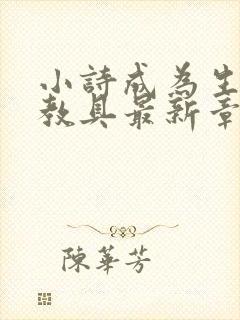 小詩成為生
教具最新章
陳華芳